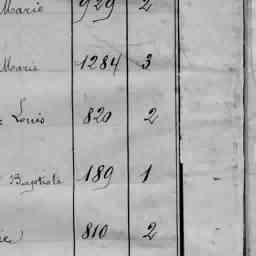 Marie 929 2
Marie 1284 3
Louis 820 2
Baptiste 189 1
810 2